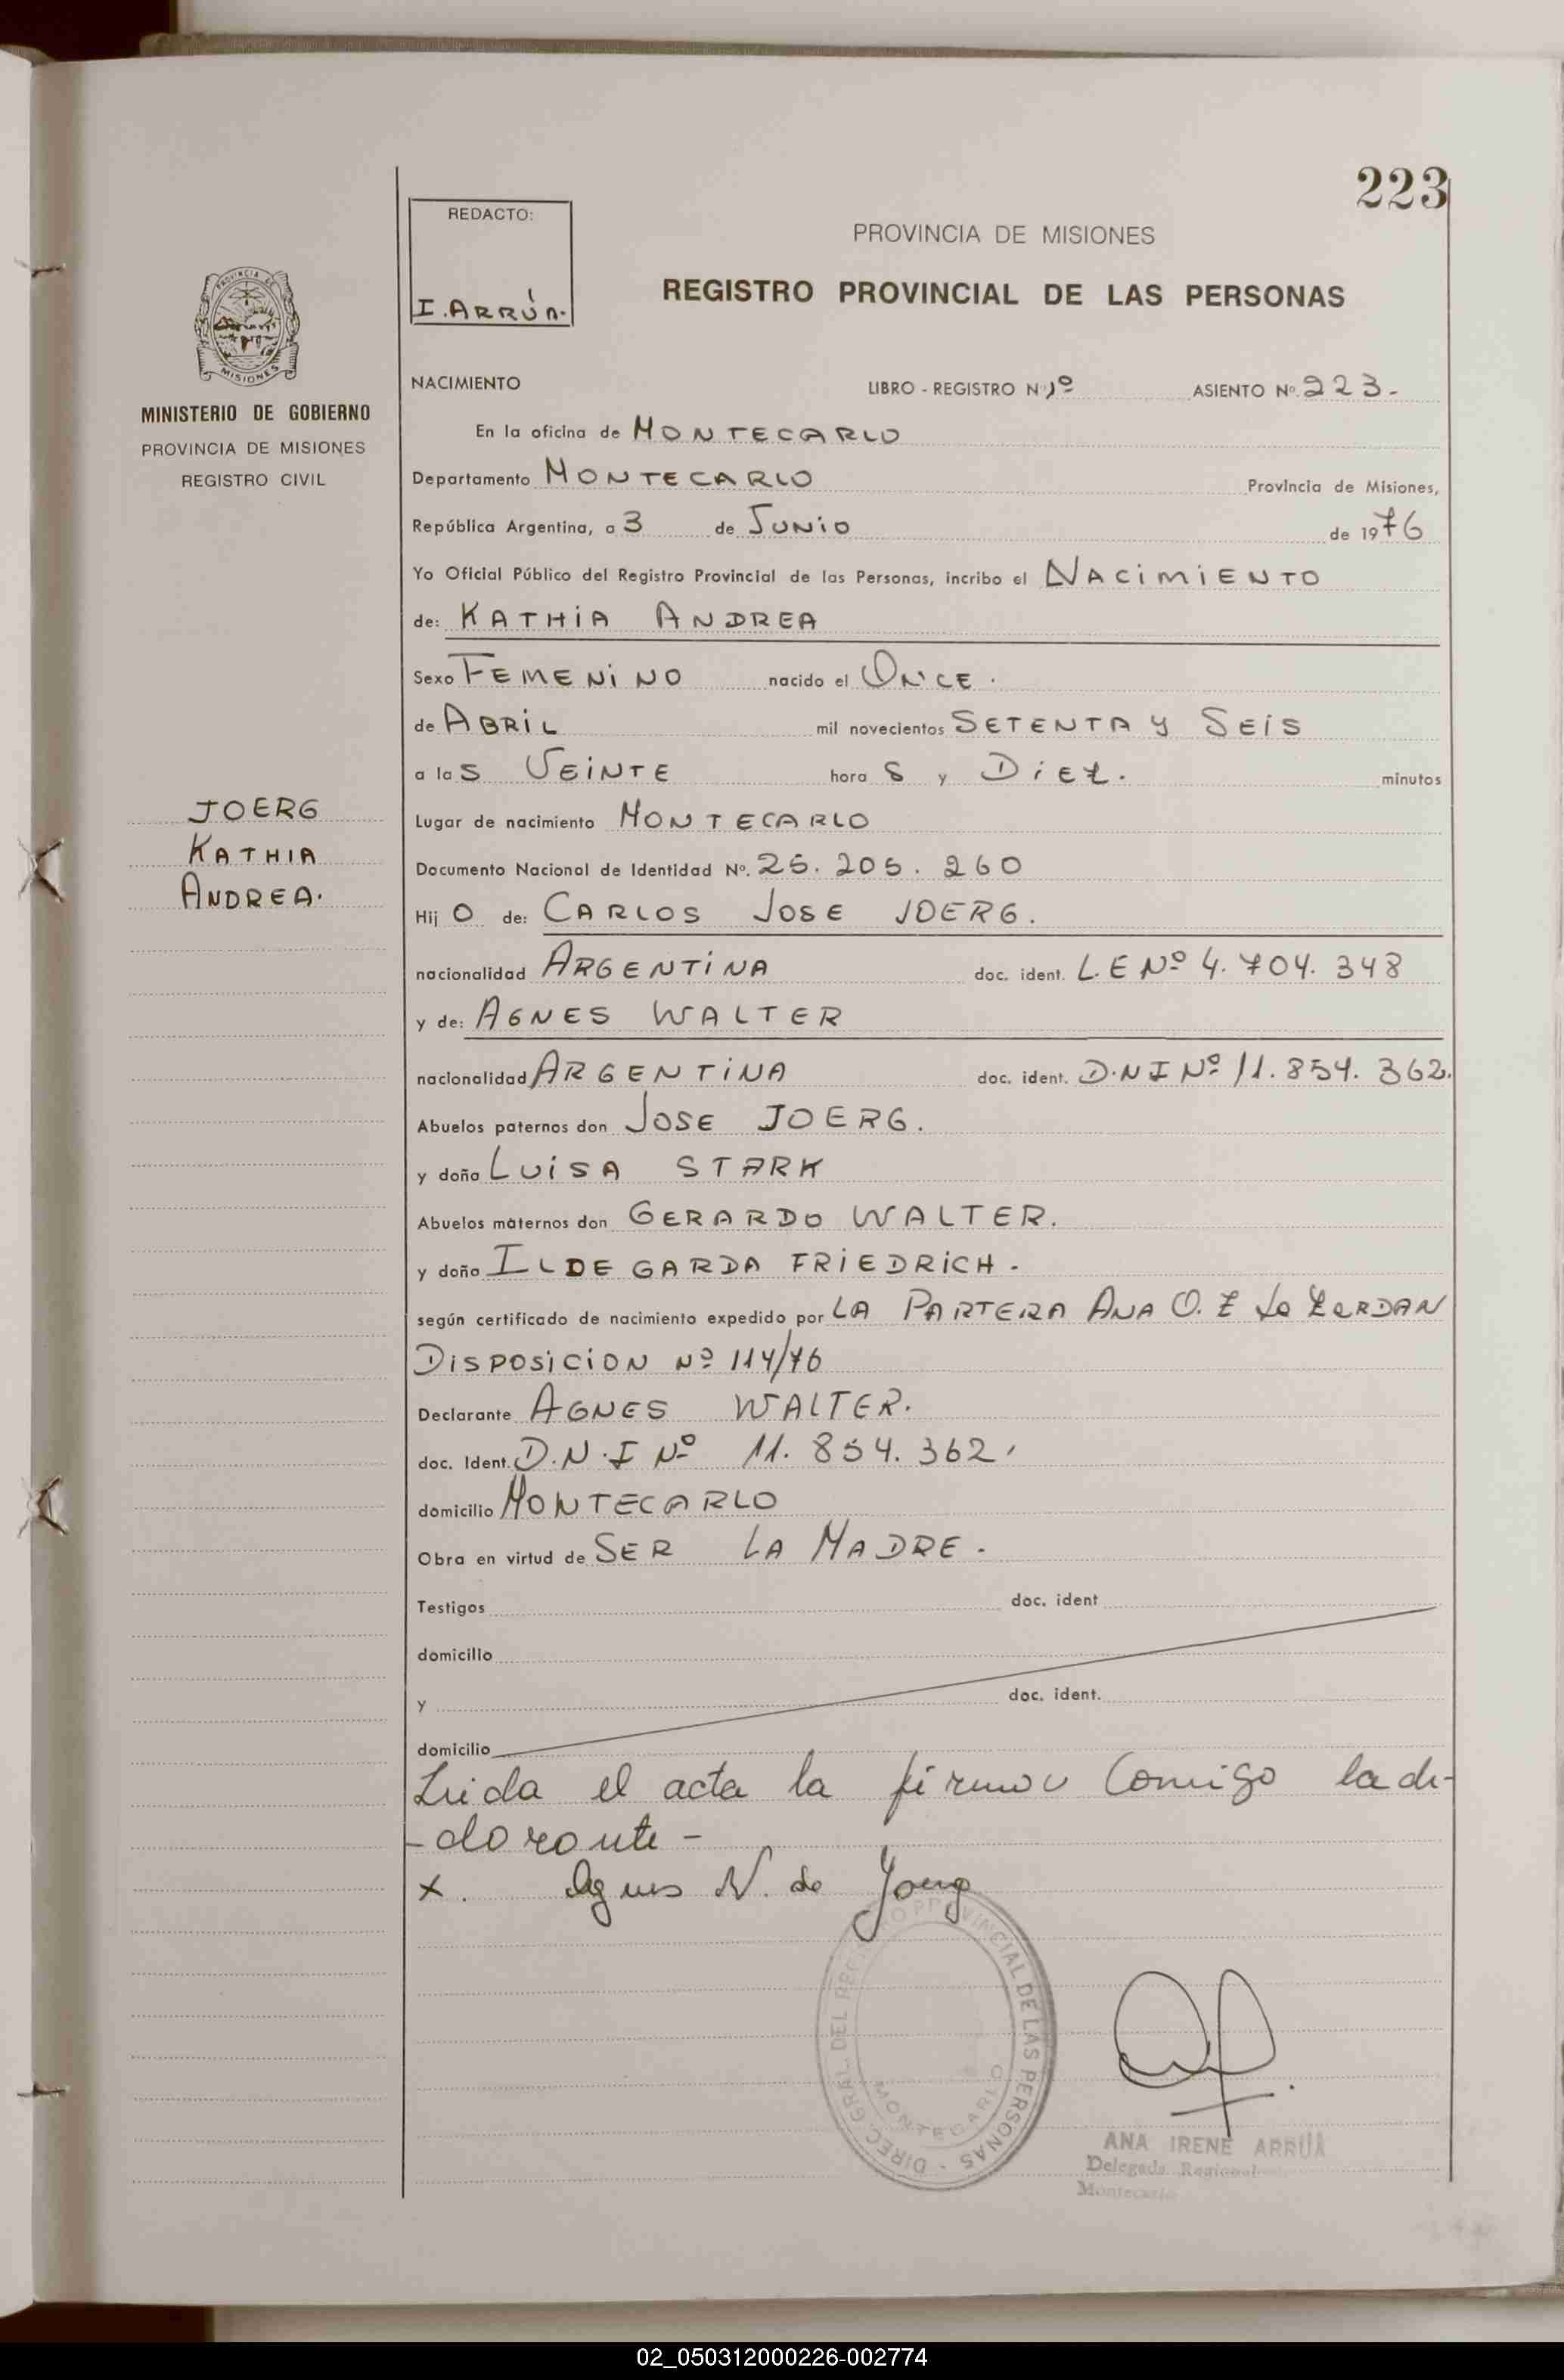 223
REDACTO:
I. ARRÚA.
PROVINCIA DE MISIONES
REGISTRO PROVINCIAL DE LAS PERSONAS
PROVINCIA DE
MISIONES
MINISTERIO DE GOBIERNO
PROVINCIA DE MISIONES
REGISTRO CIVIL
NACIMIENTO LIBRO - REGISTRO Nº 1º ASIENTO Nº. 223.-
En la oficina de MONTECARLO
Departamento MONTECARLO Provincia de Misiones,
República Argentina, a 3 de JUNIO de 1976
Yo Oficial Público del Registro Provincial de las Personas, incribo el NACIMIENTO
de: KATHIA ANDREA
Sexo FEMENINO nacido el ONCE.
de ABRIL mil novecientos SETENTA Y SEIS
a las VEINTE horas y DIEZ. minutos
JOERG
KATHIA
ANDREA.
Lugar de nacimiento MONTECARLO
Documento Nacional de Identidad Nº. 25.205.260
Hij O de: CARLOS JOSE JOERG.
nacionalidad ARGENTINA doc. ident. L.E Nº 4.704.348
y de: AGNES WALTER
nacionalidad ARGENTINA doc. ident. D.N I Nº 11.854.362.
Abuelos paternos don JOSE JOERG.
y doña LUISA STARK
Abuelos maternos don GERARDO WALTER.
y doña ILDEGARDA FRIEDRICH.
según certificado de nacimiento expedido por LA PARTERA ANA O. Z de ZERDAN
DISPOSICION Nº 114/76
Declarante AGNES WALTER.
doc. Ident. D.N.I Nº 11.854.362.
domicilio MONTECARLO
Obra en virtud de SER LA MADRE.
Testigos doc. ident
domicilio
y doc. ident.
domicilio
Leida el acta la firmó Comigo la de-
-clarante -
x. Agnes W. de Joerg
DIREC. GRAL. DEL REGISTRO PROVINCIAL DE LAS PERSONAS -
MONTECARLO
ANA IRENE ARRUA
Delegada Regional
Montecarlo
02_050312000226-002774